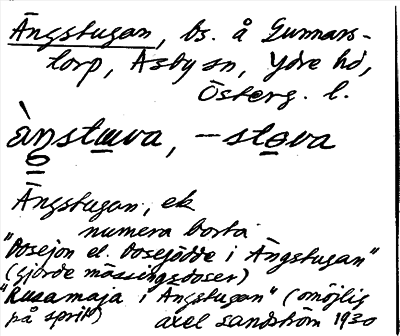 Ängstugan, bs. å Gunnars-
torp, Asby sn, Ydre hd,
Österg. l.
ängstuva, – stova
Ängstugan, ek
numera borta
"Dosejon el. Dosejödde i Ängstugan"
(gjorde mässingsdoser)
"Rusamaja i Ängstugan" (omöjlig
på sprit) Axel Sandström 1930